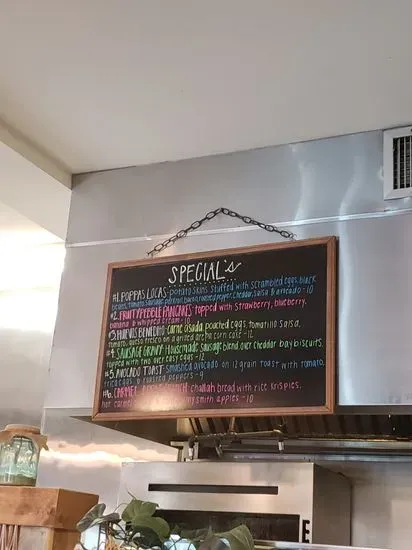 SPECIAL's
#1. POPPAS LOCAS - potato skins stuffed with scrambled eggs, black
beans, tomato, sausage, bacon, roasted pepper, cheddar, salsa & avocado - 10
#2. FRUITY PEBBLE PANCAKES - topped with strawberry, blueberry,
banana & whipped cream - 10
#3. HUEVOS BENEDITO - carne asada, poached eggs, tomatillo salsa,
tomato, queso fresco on a grilled arepa corn cake - 12
#4. SAUSAGE GRAVY - Housemade sausage blend over cheddar bay biscuits,
topped with two over easy eggs - 12
#5. AVOCADO TOAST - smashed avocado on 12 grain toast with tomato,
fried eggs & roasted peppers - 9
#6. CARMEL challah bread with rice krispies,
hot caramel smith apples - 10
E